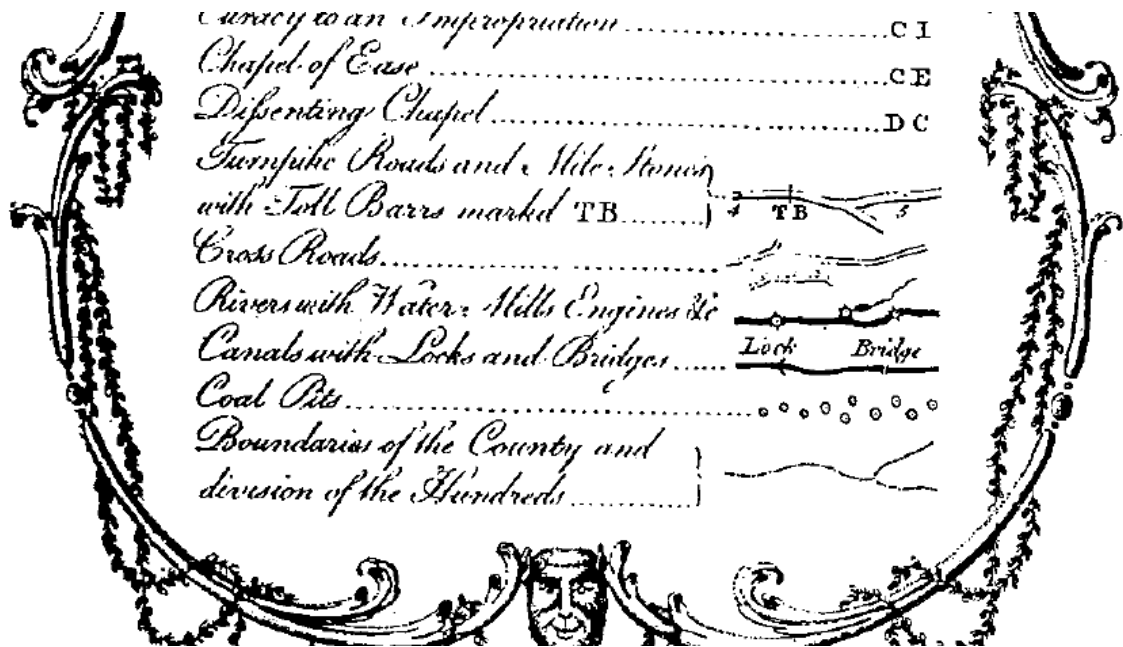 Curacy to an Impropriation C I
Chapel of Ease C E
Dißenting Chapel D C
Turnpike Roads and Mile Stones
with Toll Barrs markd TB 4 TB 5
Cross Roads
Rivers with Water Mills Engines &c
Canals with Locks and Bridges Lock Bridge
Coal Pits
Boundaries of the County and
division of the Hundreds